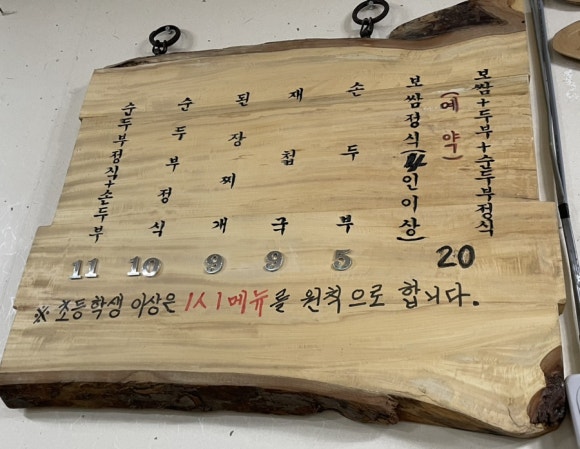 보쌈+두부+순두부정식
(예약)
보쌈정식(4인이상)
20
손두부
5
재첩국
9
된장찌개
9
순두부정식
10
순두부정식+손두부
11
※ 초등학생 이상은 1人 1메뉴를 원칙으로 합니다.